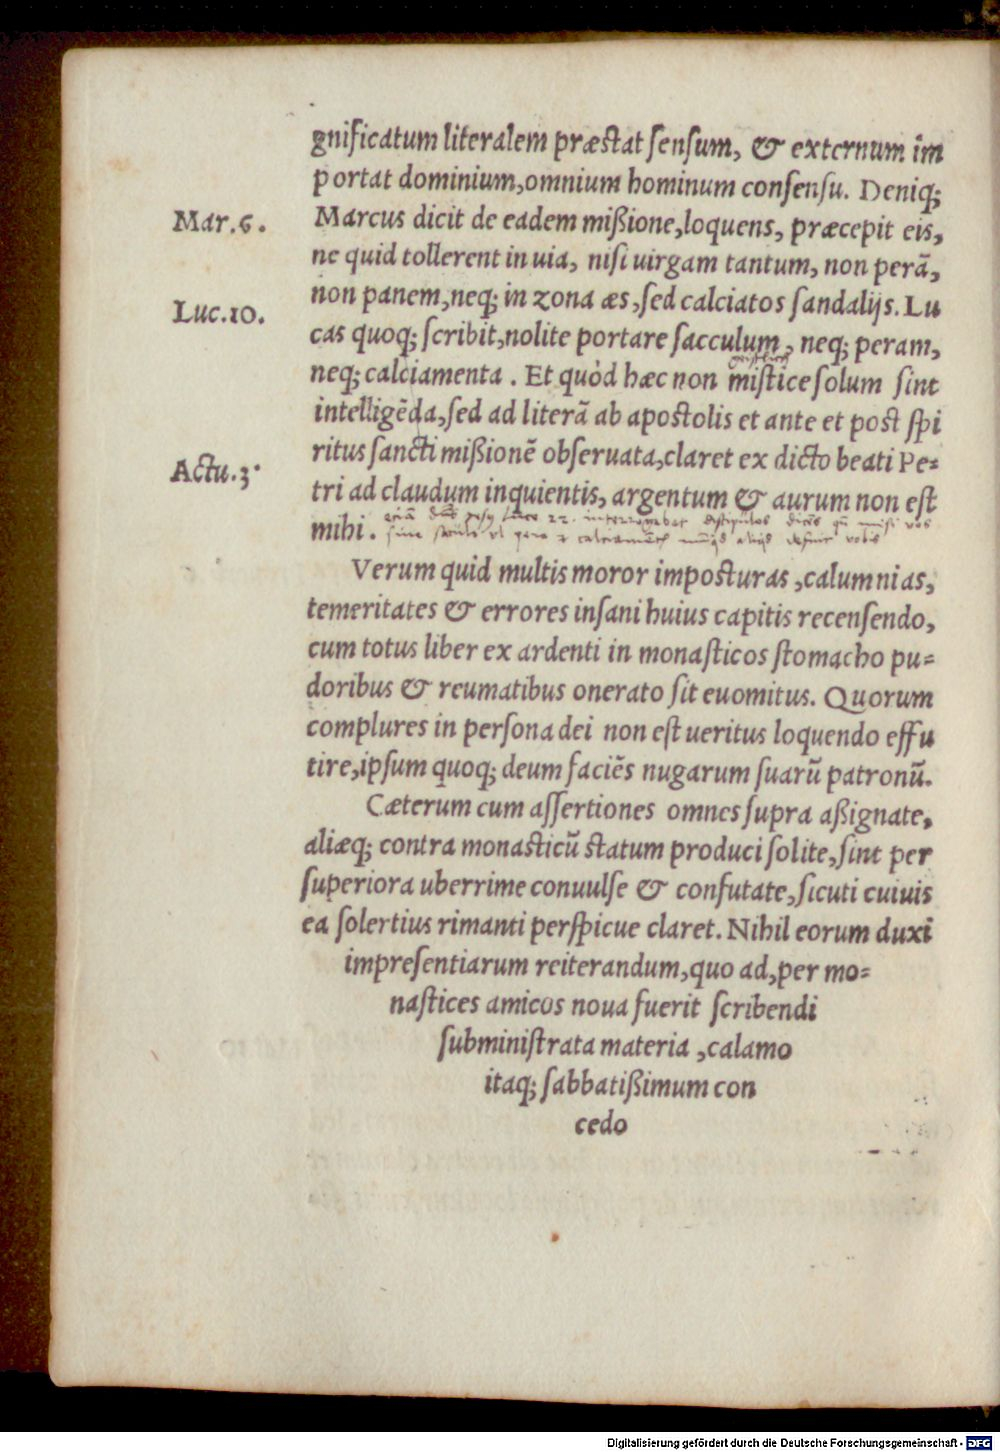 gnificatum literalem præstat ſenſum, & externum im
portat dominium,omnium hominum conſenſu. Deniq;
Mar.6.
Marcus dicit de eadem mißione,loquens, præcepit eis,
ne quid tollerent in uia, niſi uirgam tantum, non perã,
non panem,neq; in zona æs,ſed calciatos ſandalijs. Lu
Luc.10.
cas quoq; ſcribit,nolite portare ſacculum, neq; peram,
neq; calciamenta . Et quòd hæc non miſtice ſolum ſint
intelligẽda,ſed ad literã ab apoſtolis et ante et poſt ſpi
ritus ſancti mißionẽ obſeruata,claret ex dicto beati Pe=
Actu.3.
tri ad claudum inquientis, argentum & aurum non eſt
mihi .
Luce 22. interrogabat diſcipulos miſi vos
ſine vobis
Verum quid multis moror impoſturas ,calumnias,
temeritates & errores inſani huius capitis recenſendo,
cum totus liber ex ardenti in monaſticos ſtomacho pu=
doribus & reumatibus onerato ſit euomitus. Quorum
complures in perſona dei non eſt ueritus loquendo effu
tire,ipſum quoq; deum faciẽs nugarum ſuarũ patronũ.
Cæterum cum aſſertiones omnes ſupra aßignate,
aliæq; contra monaſticũ ſtatum produci ſolite,ſint per
ſuperiora uberrime conuulſe & confutate,ſicuti cuiuis
ea ſolertius rimanti perſpicue claret. Nihil eorum duxi
impreſentiarum reiterandum,quo ad,per mo=
naſtices amicos noua fuerit ſcribendi
ſubminiſtrata materia ,calamo
itaq; ſabbatißimum con
cedo
Digitalisierung gefördert durch die Deutsche Forschungsgemeinschaft - DFG